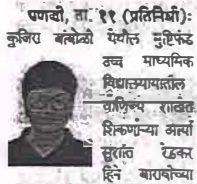 पणजी, ता. ११ (प्रतिनिधी):
कुजिरा बांबोळी येथील मुष्टिफंड
उच्च माध्यमिक
विद्यालयातील
वाणिज्य शाखेत
शिकणाऱ्या आर्या
सुशांत रेडकर
हिने बारावीच्या